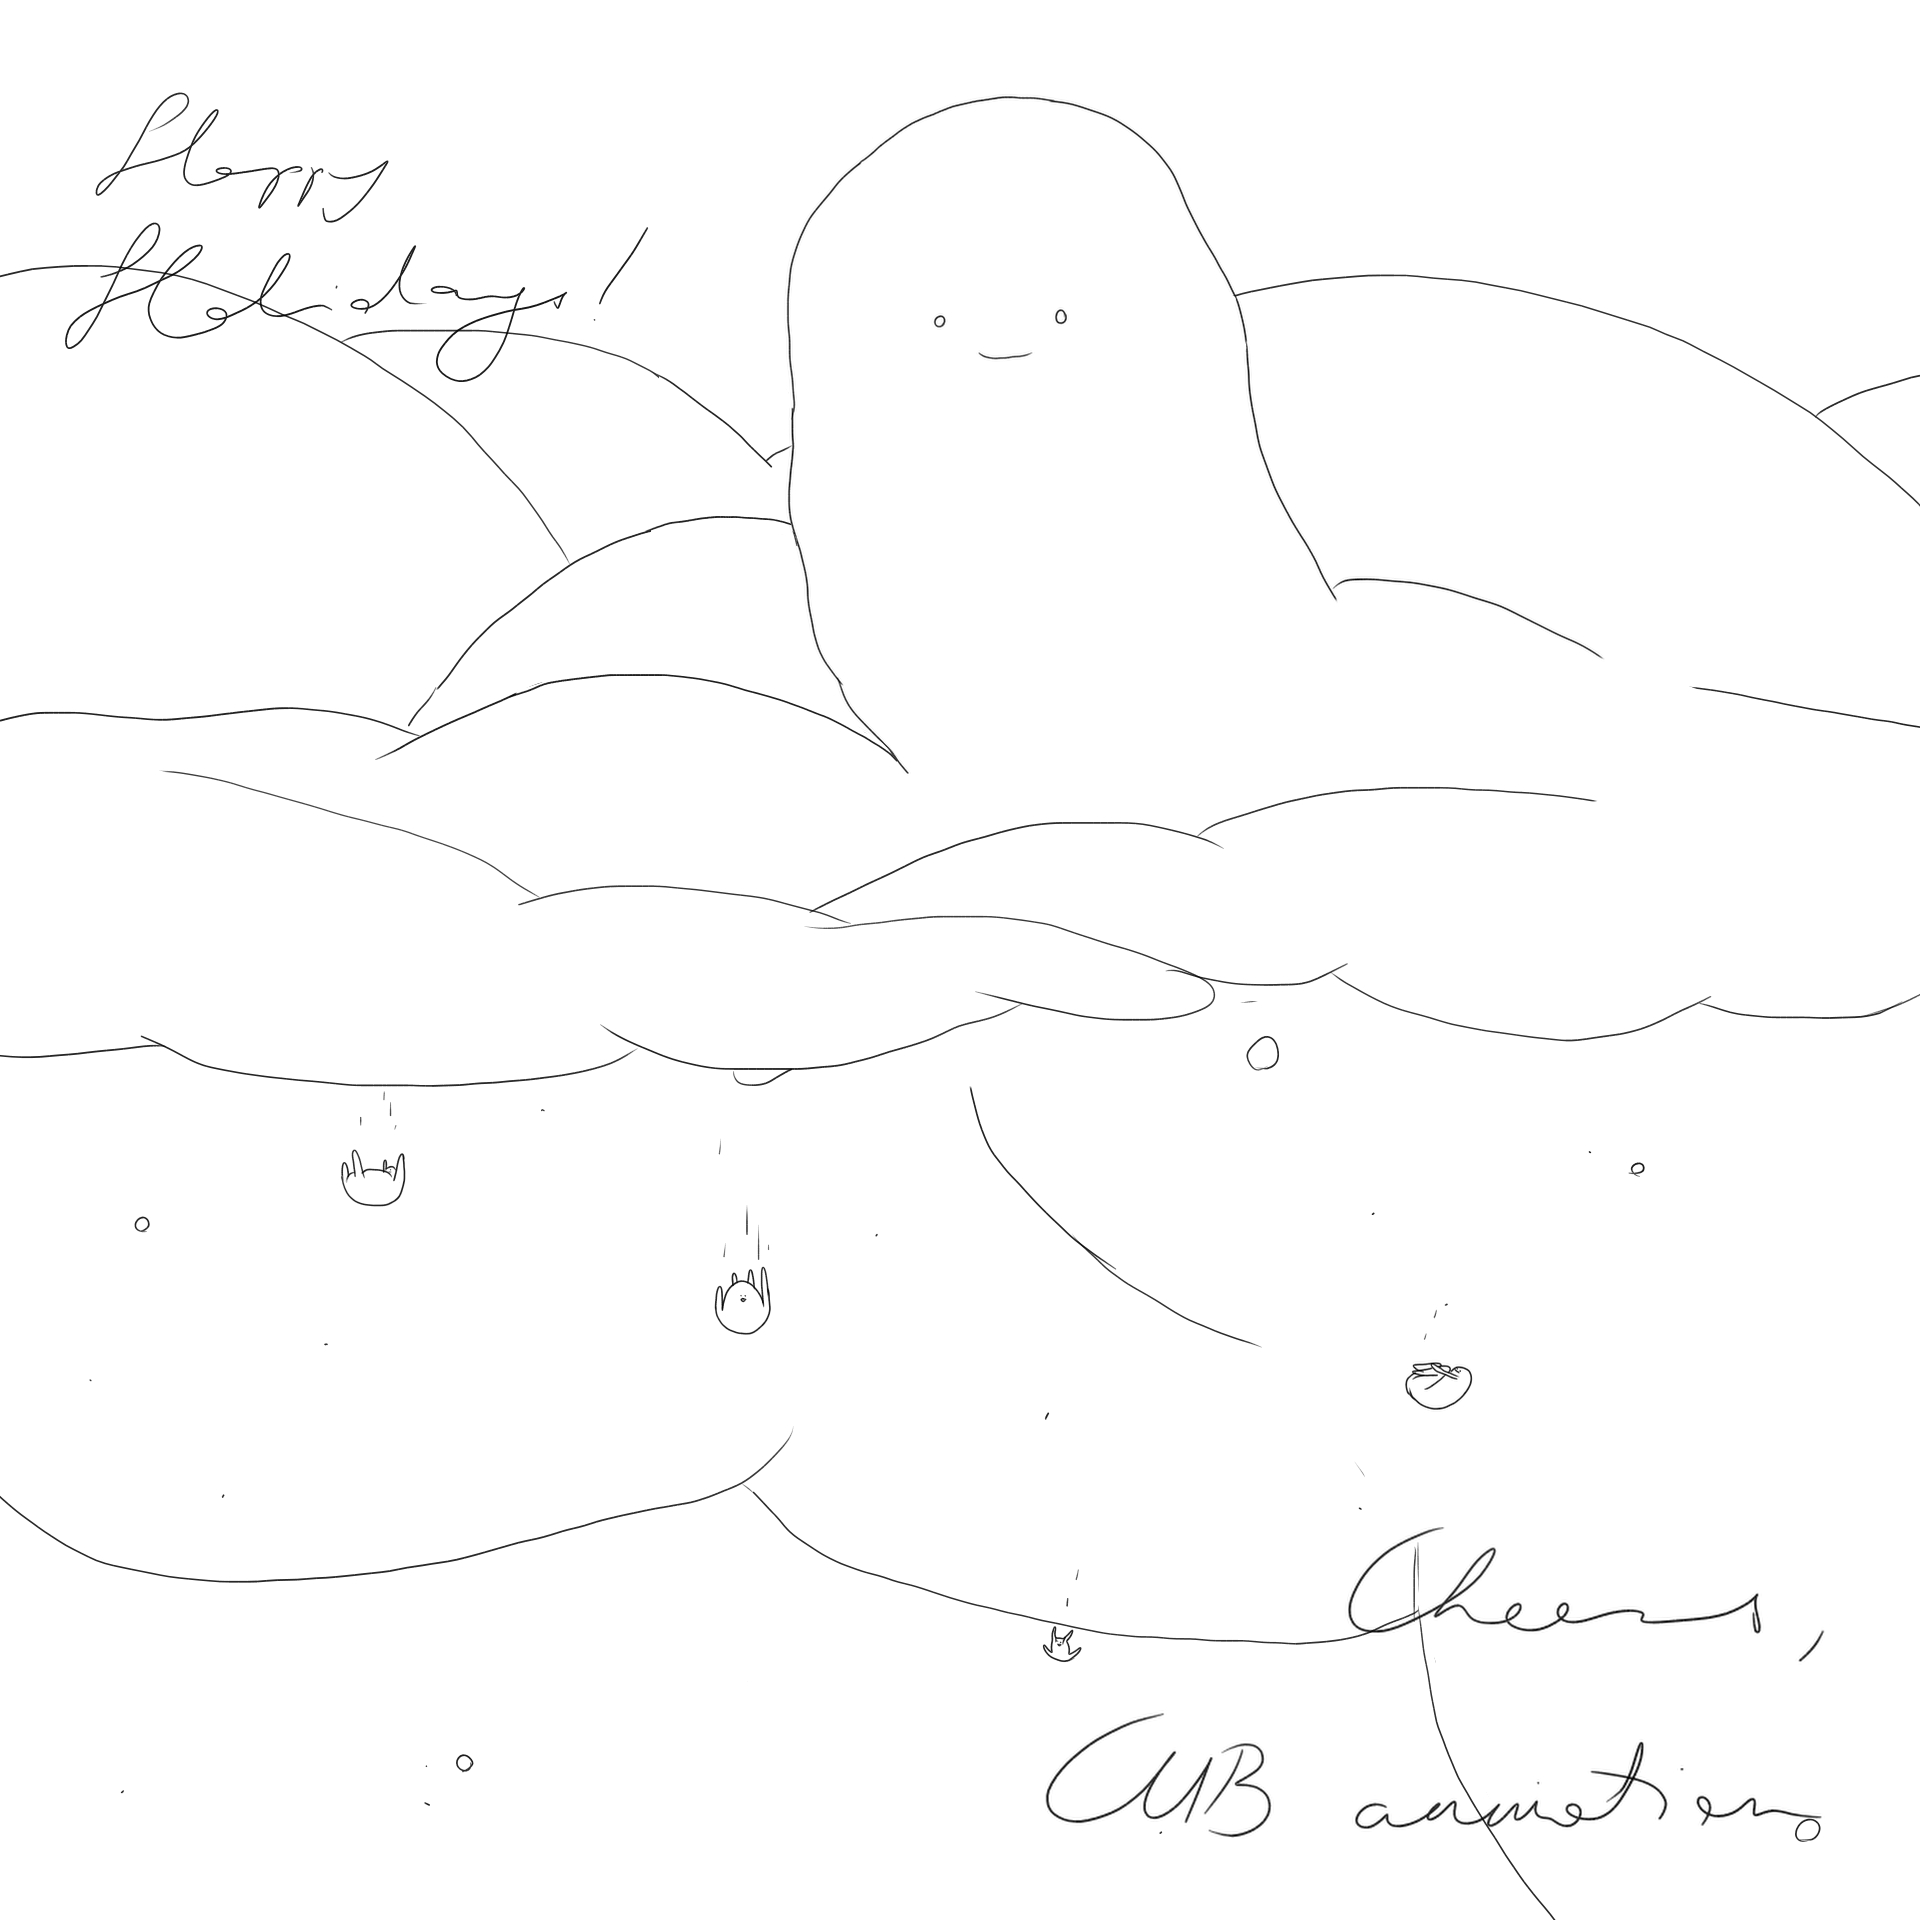 Happy
Holidays!
Cheers,
CUB animation